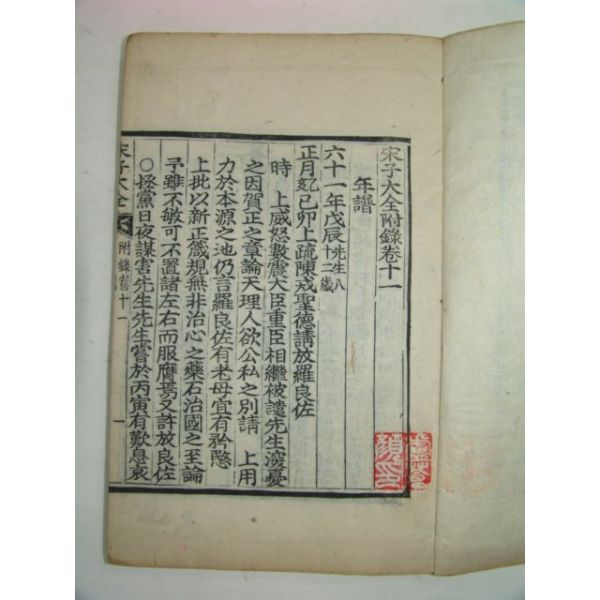 宋子大全附錄卷十一
年譜
六十一年戊辰先生八十二歲
正月乙巳卯上疏陳戒聖德請放羅良佐
時 上威怒數震大臣重臣相繼被譴先生深憂
之因賀正之章論天理人欲公私之別請 上用
力於本源之地仍言羅良佐有老母宜有矜愍
上批以新正箴規無非治心之藥石治國之至論
予雖不敏可不置諸左右而服膺焉又許放良佐
○拯黨日夜謀害先生先生嘗於丙寅有歎息哀
宋子大全 附錄卷十一 一